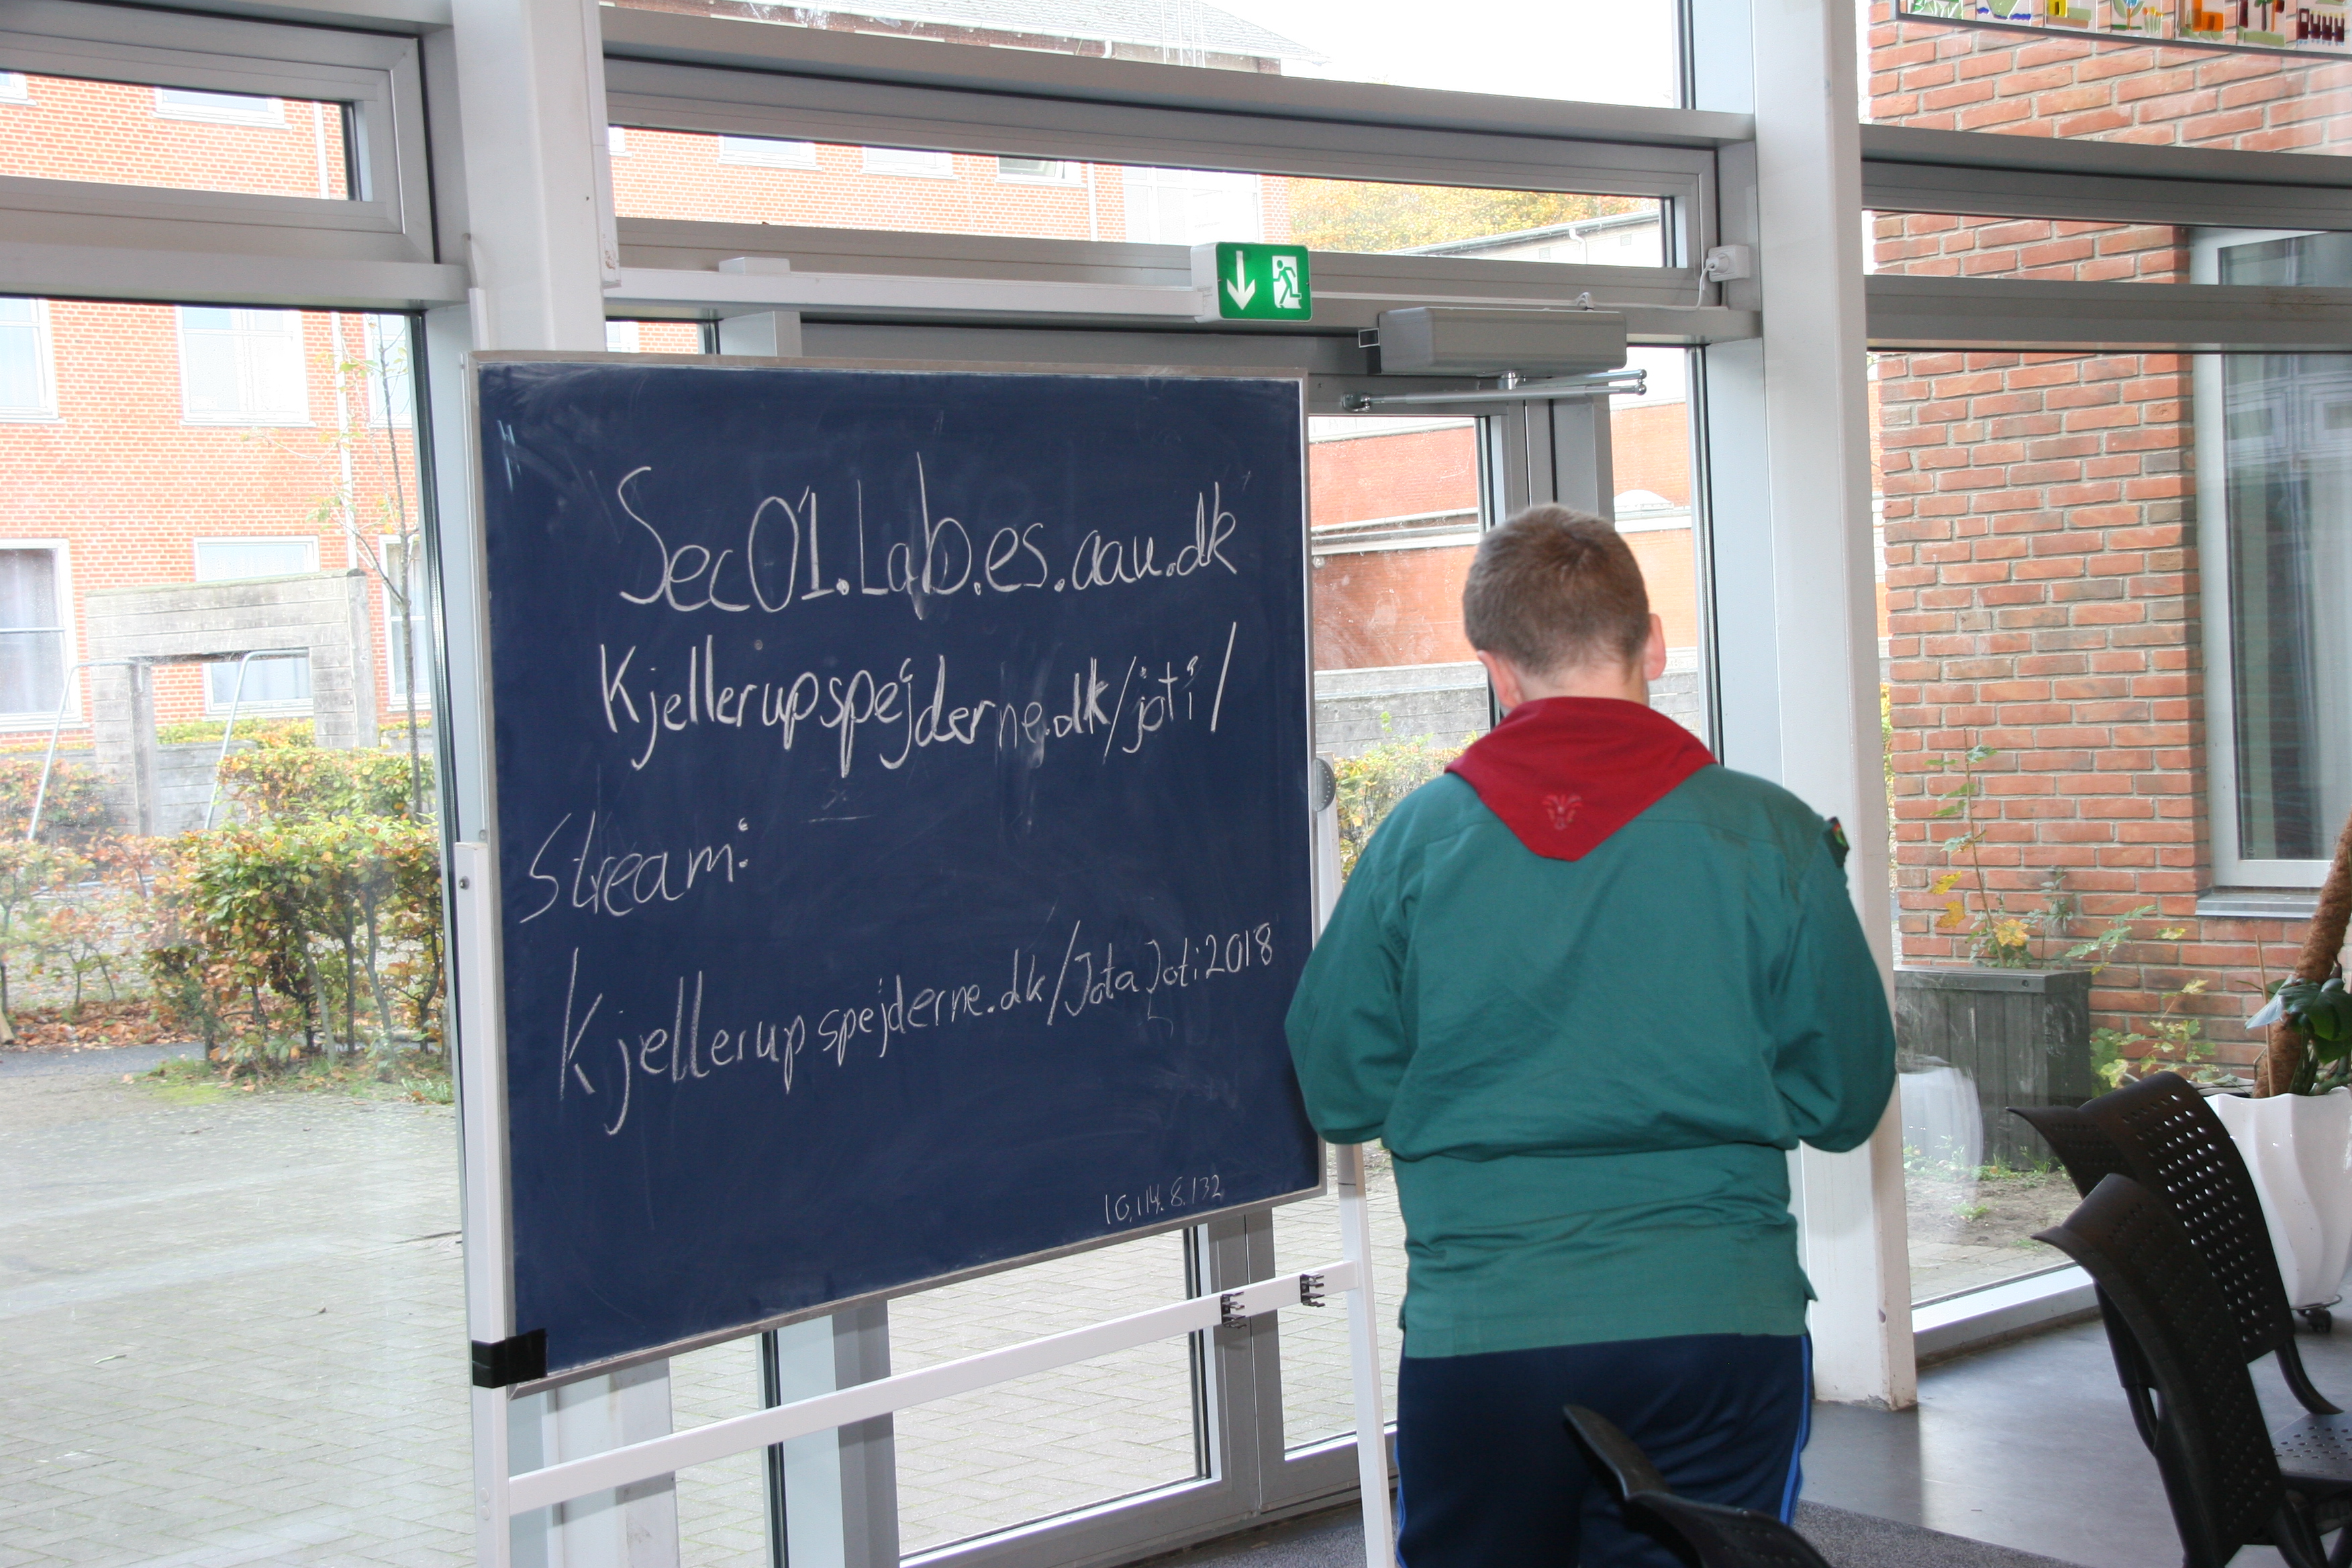 Sec01.Lab.es.aau.dk
Kjellerupspejderne.dk/joti/
Stream:
Kjellerupspejderne.dk/JotaJoti2018
10.114.8.132